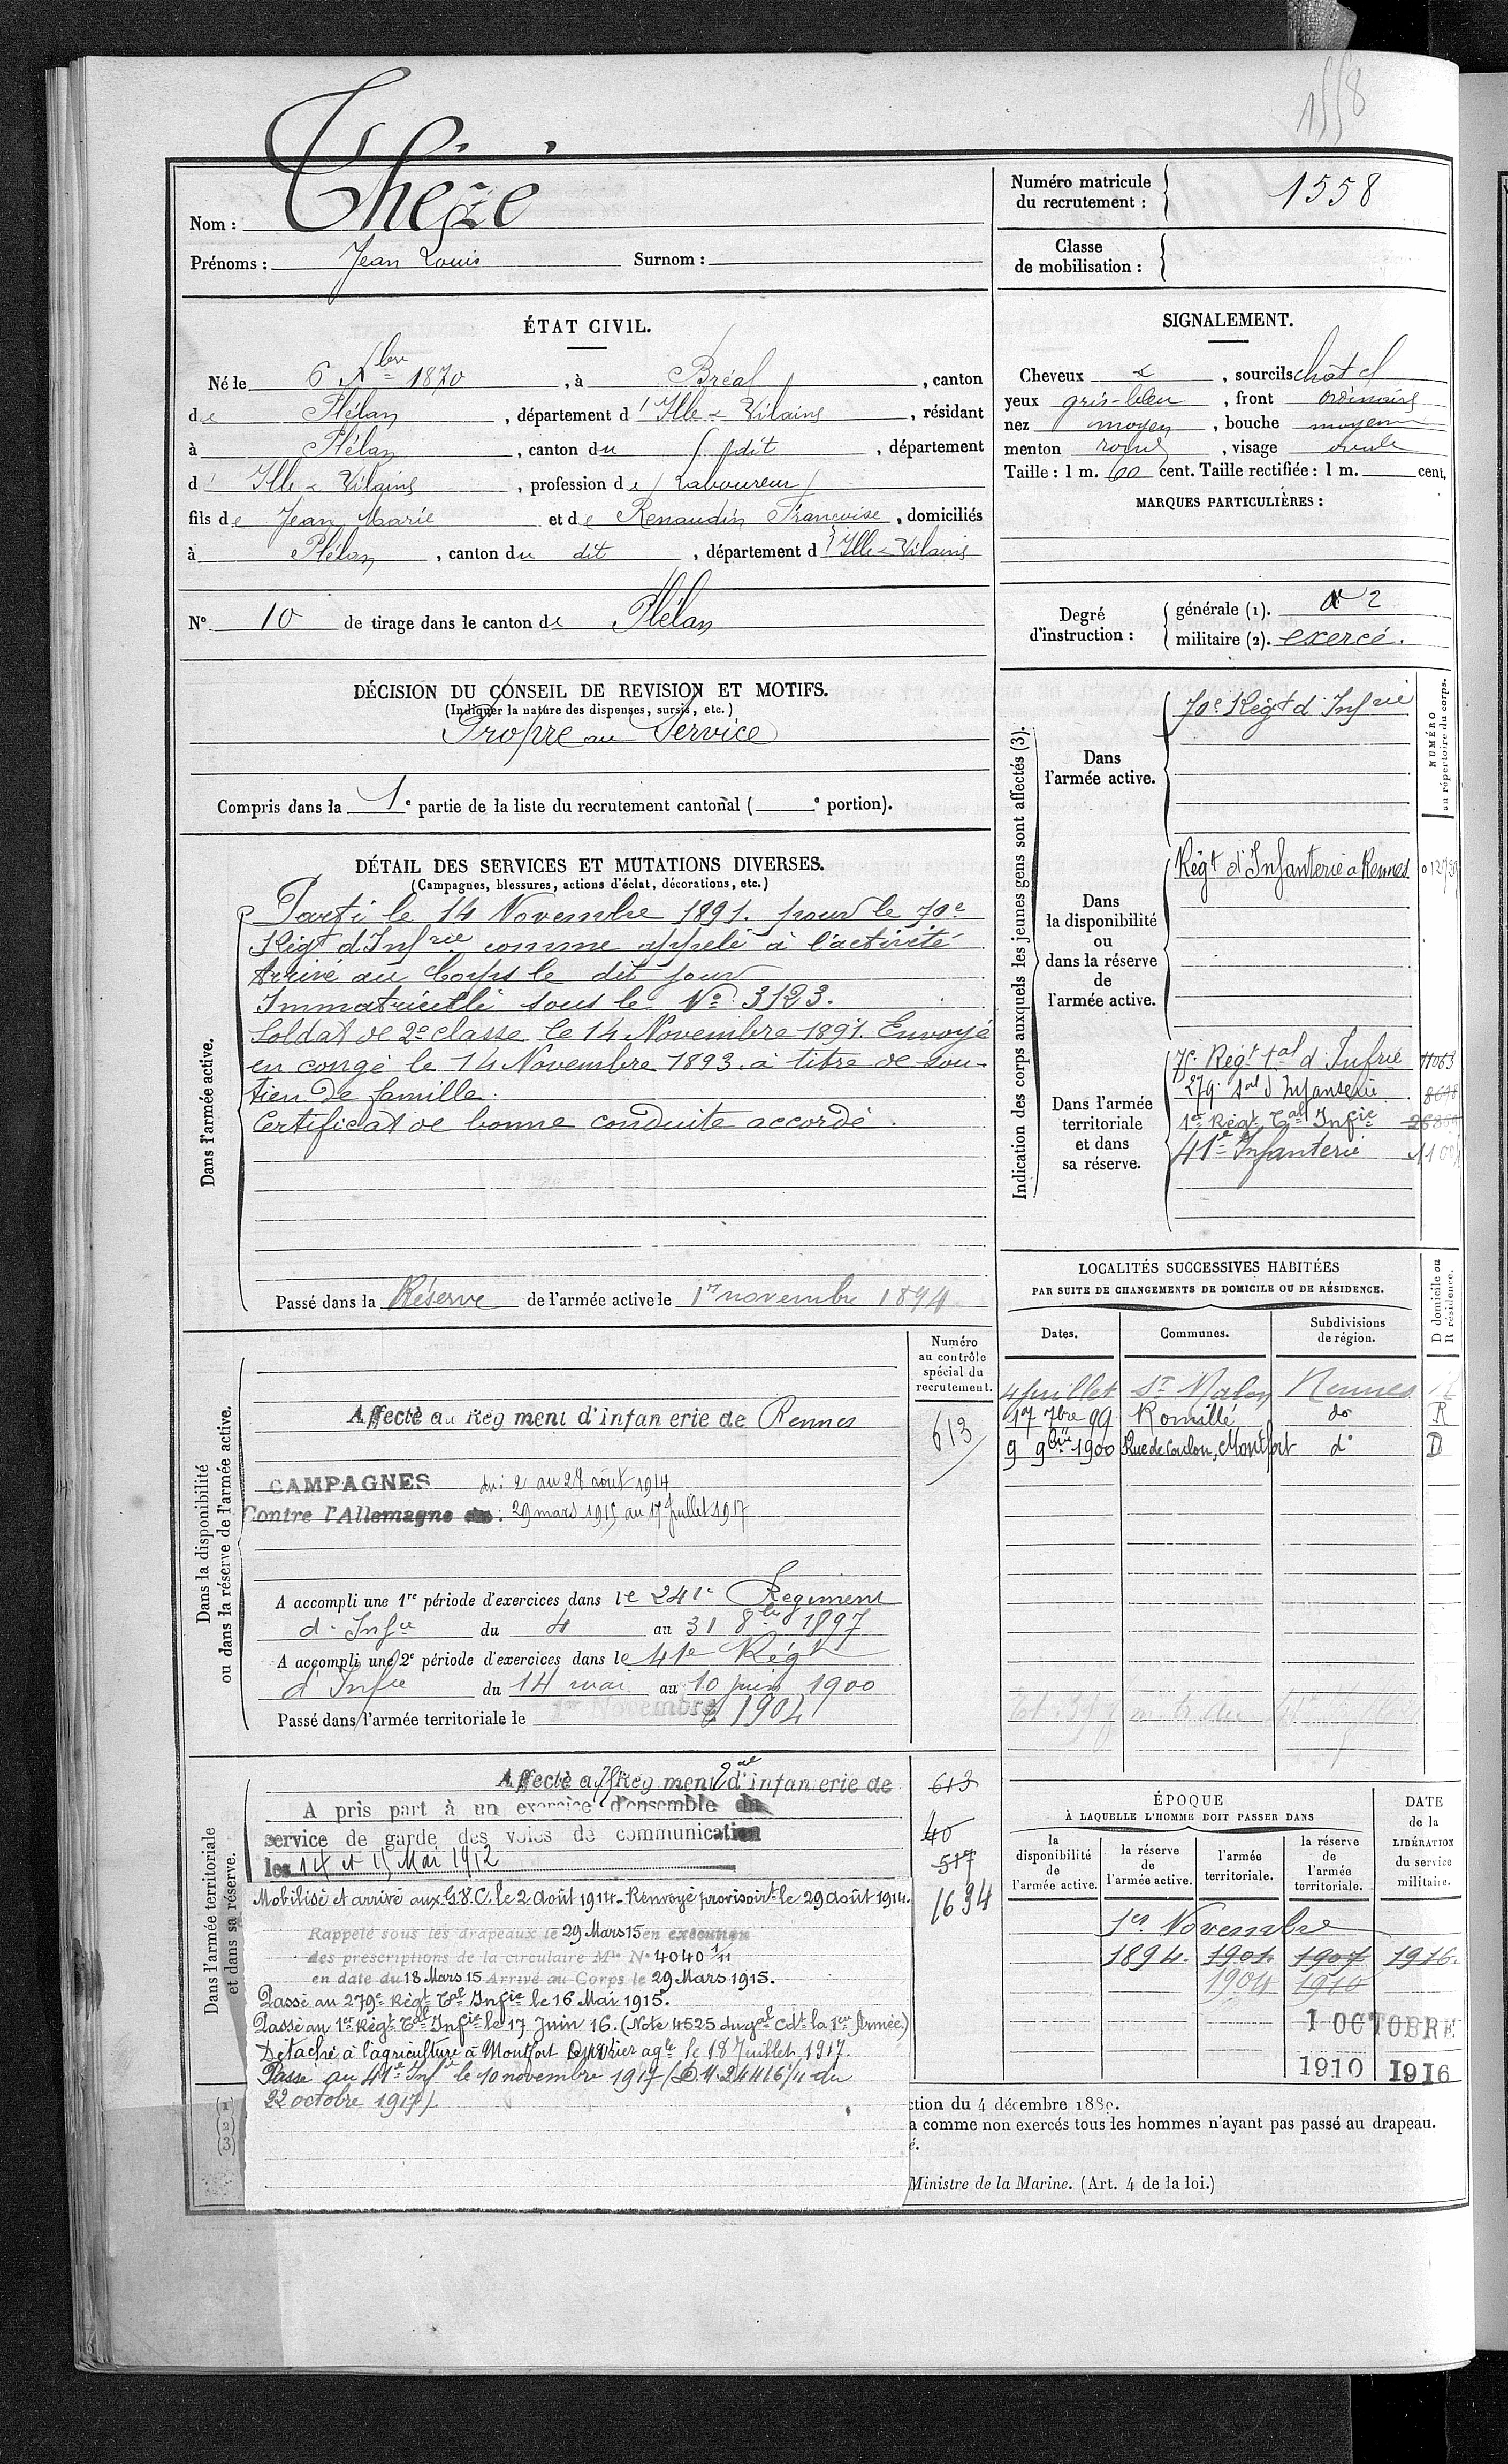 1558
Nom : Thézé
Prénoms : Jean Louis Surnom :
Numéro matricule du recrutement : 1558
Classe de mobilisation :
ÉTAT CIVIL.
Né le 6 Xbre 1870, à Bréal, canton
de Plélan, département d'Ille & Vilaine, résidant
à Plélan, canton du dit, département
d' Ille & Vilaine, profession de Laboureur
fils de Jean Marie et de Renaudin Françoise, domiciliés
à Plélan, canton du dit, département d'Ille & Vilaine
N° 10 de tirage dans le canton de Plélan
SIGNALEMENT.
Cheveux &, sourcils chat cl
yeux gris-bleu, front ordinaire
nez moyen, bouche moyenne
menton rond, visage ovale
Taille : 1 m. 60 cent. Taille rectifiée : 1 m. cent.
MARQUES PARTICULIÈRES :
Degré d'instruction :
générale (1). 2
militaire (2). exercé.
DÉCISION DU CONSEIL DE REVISION ET MOTIFS.
(Indiquer la nature des dispenses, sursis, etc.)
Propre au Service
Compris dans la 1e partie de la liste du recrutement cantonal ( e portion).
DÉTAIL DES SERVICES ET MUTATIONS DIVERSES.
(Campagnes, blessures, actions d'éclat, décorations, etc.)
Dans l'armée active.
Parti le 14 Novembre 1891. pour le 70e
Régt d'Infrie comme appelé à l'activité
Arrivé au Corps le dit jour
Immatriculé sous le No 3123.
Soldat de 2e classe le 14 Novembre 1891. Envoyé
en congé le 14 Novembre 1893. à titre de sou-
tien de famille.
Certificat de bonne conduite accordé.
Passé dans la Réserve de l'armée active le 1er novembre 1894
Indication des corps auxquels les jeunes gens sont affectés (3).
NUMÉRO au répertoire du corps.
Dans l'armée active.
70e Régt d'Infrie
Dans la disponibilité ou dans la réserve de l'armée active.
Régt d'Infanterie à Rennes
Dans l'armée territoriale et dans sa réserve.
75e Régt tal d'Infrie 11063
279e tal d'Infanterie
1er Régt Tal Infie
41e Infanterie
LOCALITÉS SUCCESSIVES HABITÉES
PAR SUITE DE CHANGEMENTS DE DOMICILE OU DE RÉSIDENCE.
D domicile ou R résidence.
Dates. Communes. Subdivisions de région.
4 juillet St Malon Rennes
17 7bre 99 Romillé do R
9 9bre 1900 Rue de Coulon, Montfort do D
Dans la disponibilité ou dans la réserve de l'armée active.
Numéro au contrôle spécial du recrutement.
Affecté au Régiment d'infanterie de Rennes
613
CAMPAGNES du : 2 au 28 août 1914
Contre l'Allemagne du : 29 mars 1915 au 17 Juillet 1917
A accompli une 1re période d'exercices dans le 241e Régiment
d'Infie du 4 au 31 8bre 1897
A accompli une 2e période d'exercices dans le 41e Régt
d'Infie du 14 mai au 10 juin 1900
Passé dans l'armée territoriale le 1er Novembre 1904
Dans l'armée territoriale et dans sa réserve.
Affecté au 75e Régiment tal d'infanterie de
A pris part à un exercice d'ensemble du
service de garde des voies de communication
les 14 et 15 Mai 1912
613
40
517
1634
Mobilisé et arrivé aux G.V.C. le 2 Août 1914. Renvoyé provisoirt le 29 Août 1914.
Rappelé sous les drapeaux le 29 Mars 15 en exécution
des prescriptions de la circulaire Mlle No 4040 1/11
en date du 18 Mars 15 Arrivé au Corps le 29 Mars 1915.
Passé au 279e Régt Tal Infie le 16 Mai 1915.
Passé au 1er Régt Tal Infie le 17 Juin 16. (Note 4525 du gal Cdt la 1ère Armée)
Détaché à l'agriculture à Montfort Ouvrier agle le 18 Juillet 1917.
Passé au 41e Infie le 10 novembre 1917 (D.M. 24416 1/11 du
22 octobre 1917).
(1)
(2)
(3)
ÉPOQUE
À LAQUELLE L'HOMME DOIT PASSER DANS
la disponibilité de l'armée active. la réserve de l'armée active. l'armée territoriale. la réserve de l'armée territoriale.
DATE de la LIBÉRATION du service militaire.
1er Novembre
1894. 1901. 1907 1916.
1904 1910
1 OCTOBRE
1910 1916
ction du 4 décembre 1889.
a comme non exercés tous les hommes n'ayant pas passé au drapeau.
é.
Ministre de la Marine. (Art. 4 de la loi.)